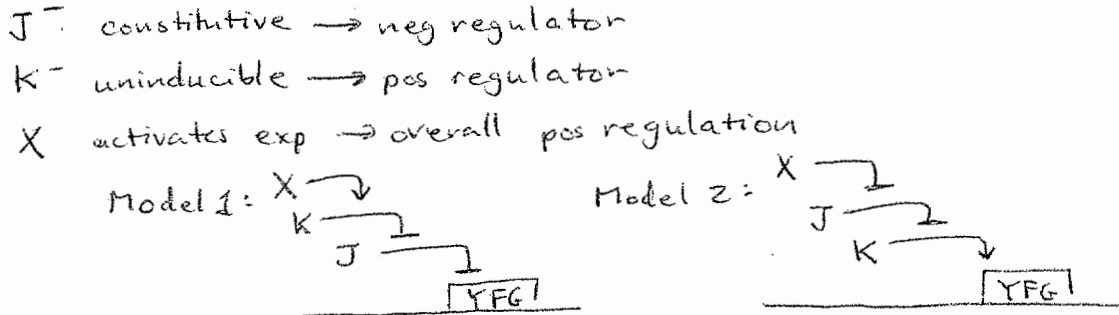 J⁻: constitutive → neg regulator
K⁻ uninducible → pos regulator
X activates exp → overall pos regulation
Model 1: X
K
J
YFG
Model 2: X
J
K
YFG